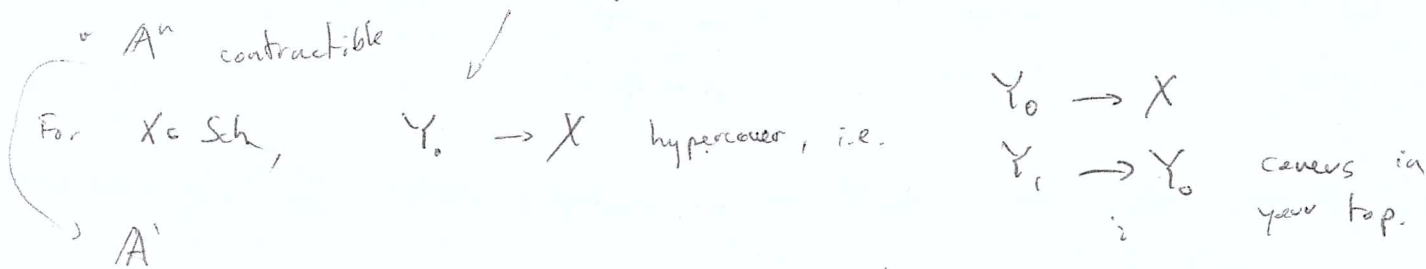 " 𝔸ⁿ contractible
For X ∈ Sch, Y. → X hypercover, i.e.
Y₀ → X
Y₁ → Y₀ covers in
your top.
𝔸¹